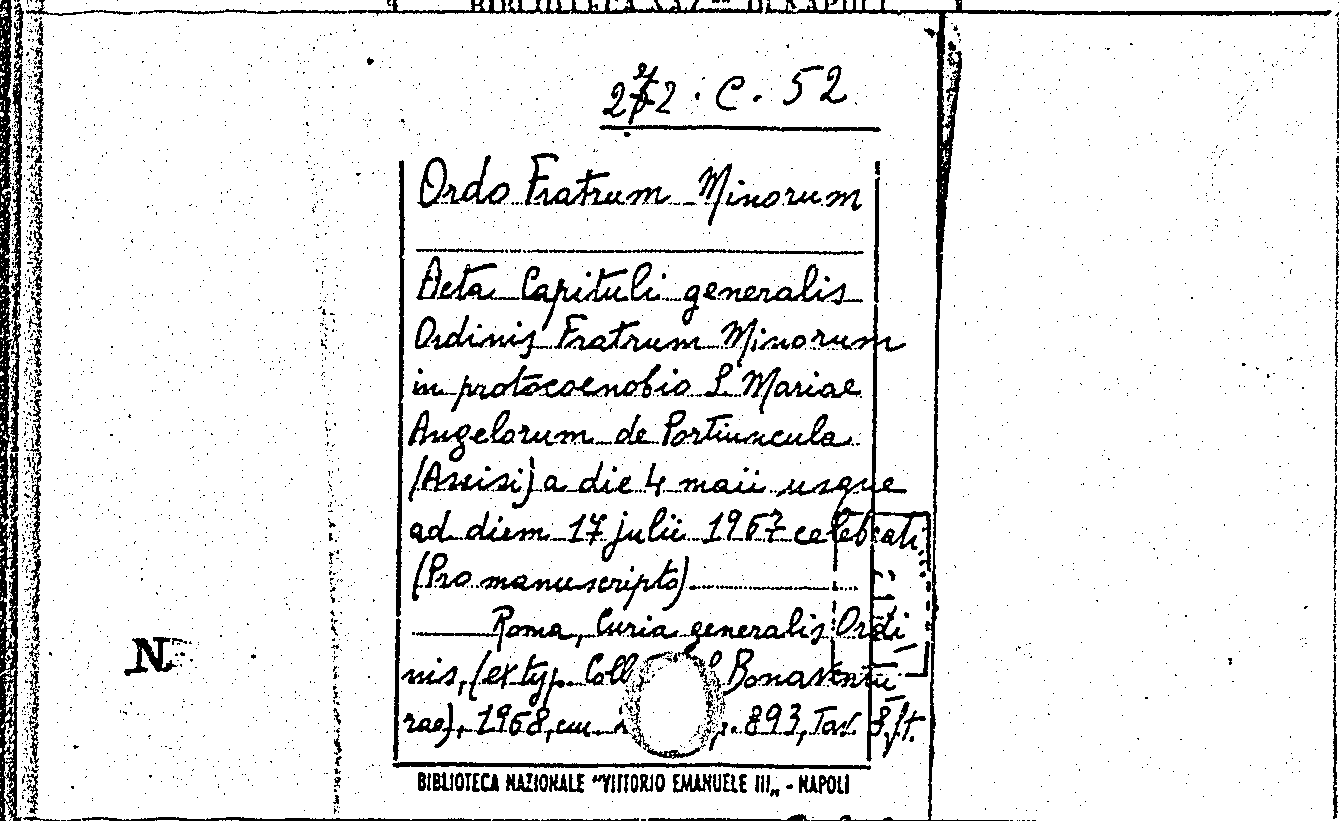 BIBLIOTECA NAZ. DI NAPOLI
2 2. C. 52
Ordo Fratrum Minorum
Acta Capituli generalis
Ordinis Fratrum Minorum
in protocoenobio S. Mariae
Angelorum de Portiuncula
(Assisi) a die 4 maii usque
ad diem 17 julii 1967 celebrati.
(Pro manuscripto)
Roma, Curia generalis Ordi
nis, (ex typ. Coll Bonaventu
rae), 1968, cm. 893, Tav. 8 f.t.
N
BIBLIOTECA NAZIONALE "VITTORIO EMANUELE III„ - NAPOLI